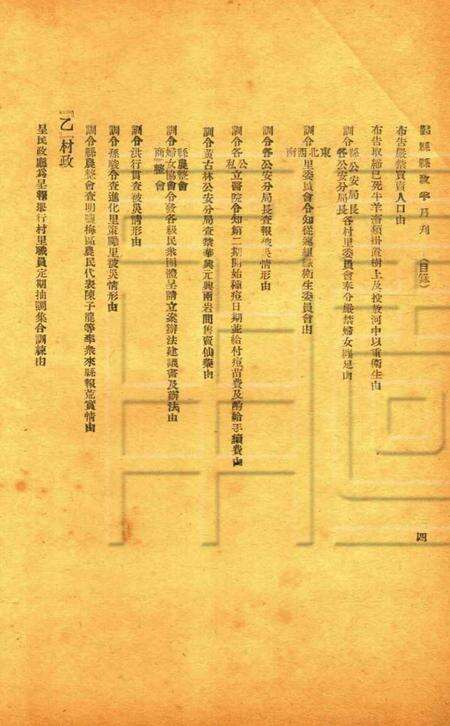 縣政半月刊 （目錄） 四
布告嚴禁買賣人口由
布告取締已死牛羊猪貓掛置樹上及投放河中以重衛生由
訓令縣公安局長各公安分局長各村里委員會奉令嚴禁婦女纏足由
訓令東北西南里委員會令知從速組織衛生委員會由
訓令各公安分局長查報被災情形由
訓令各公私立醫院令知第二期開始種痘日期並給付痘苗費及酌給手續費由
訓令黃古林公安分局查禁華興元興兩岩間售賣仙藥由
訓令縣農整會婦女協會商整會令發各級民衆團體呈請立案辦法建議書及辦法由
訓令洪行貫查被災情形由
訓令孫駿令查進化里東勵里被災情形由
訓令縣農整會查明鹽梅區農民代表陳子龍等率衆來縣報荒實情由
『乙』村政
呈民政廳爲呈報舉行村里職員定期抽調集合訓練由